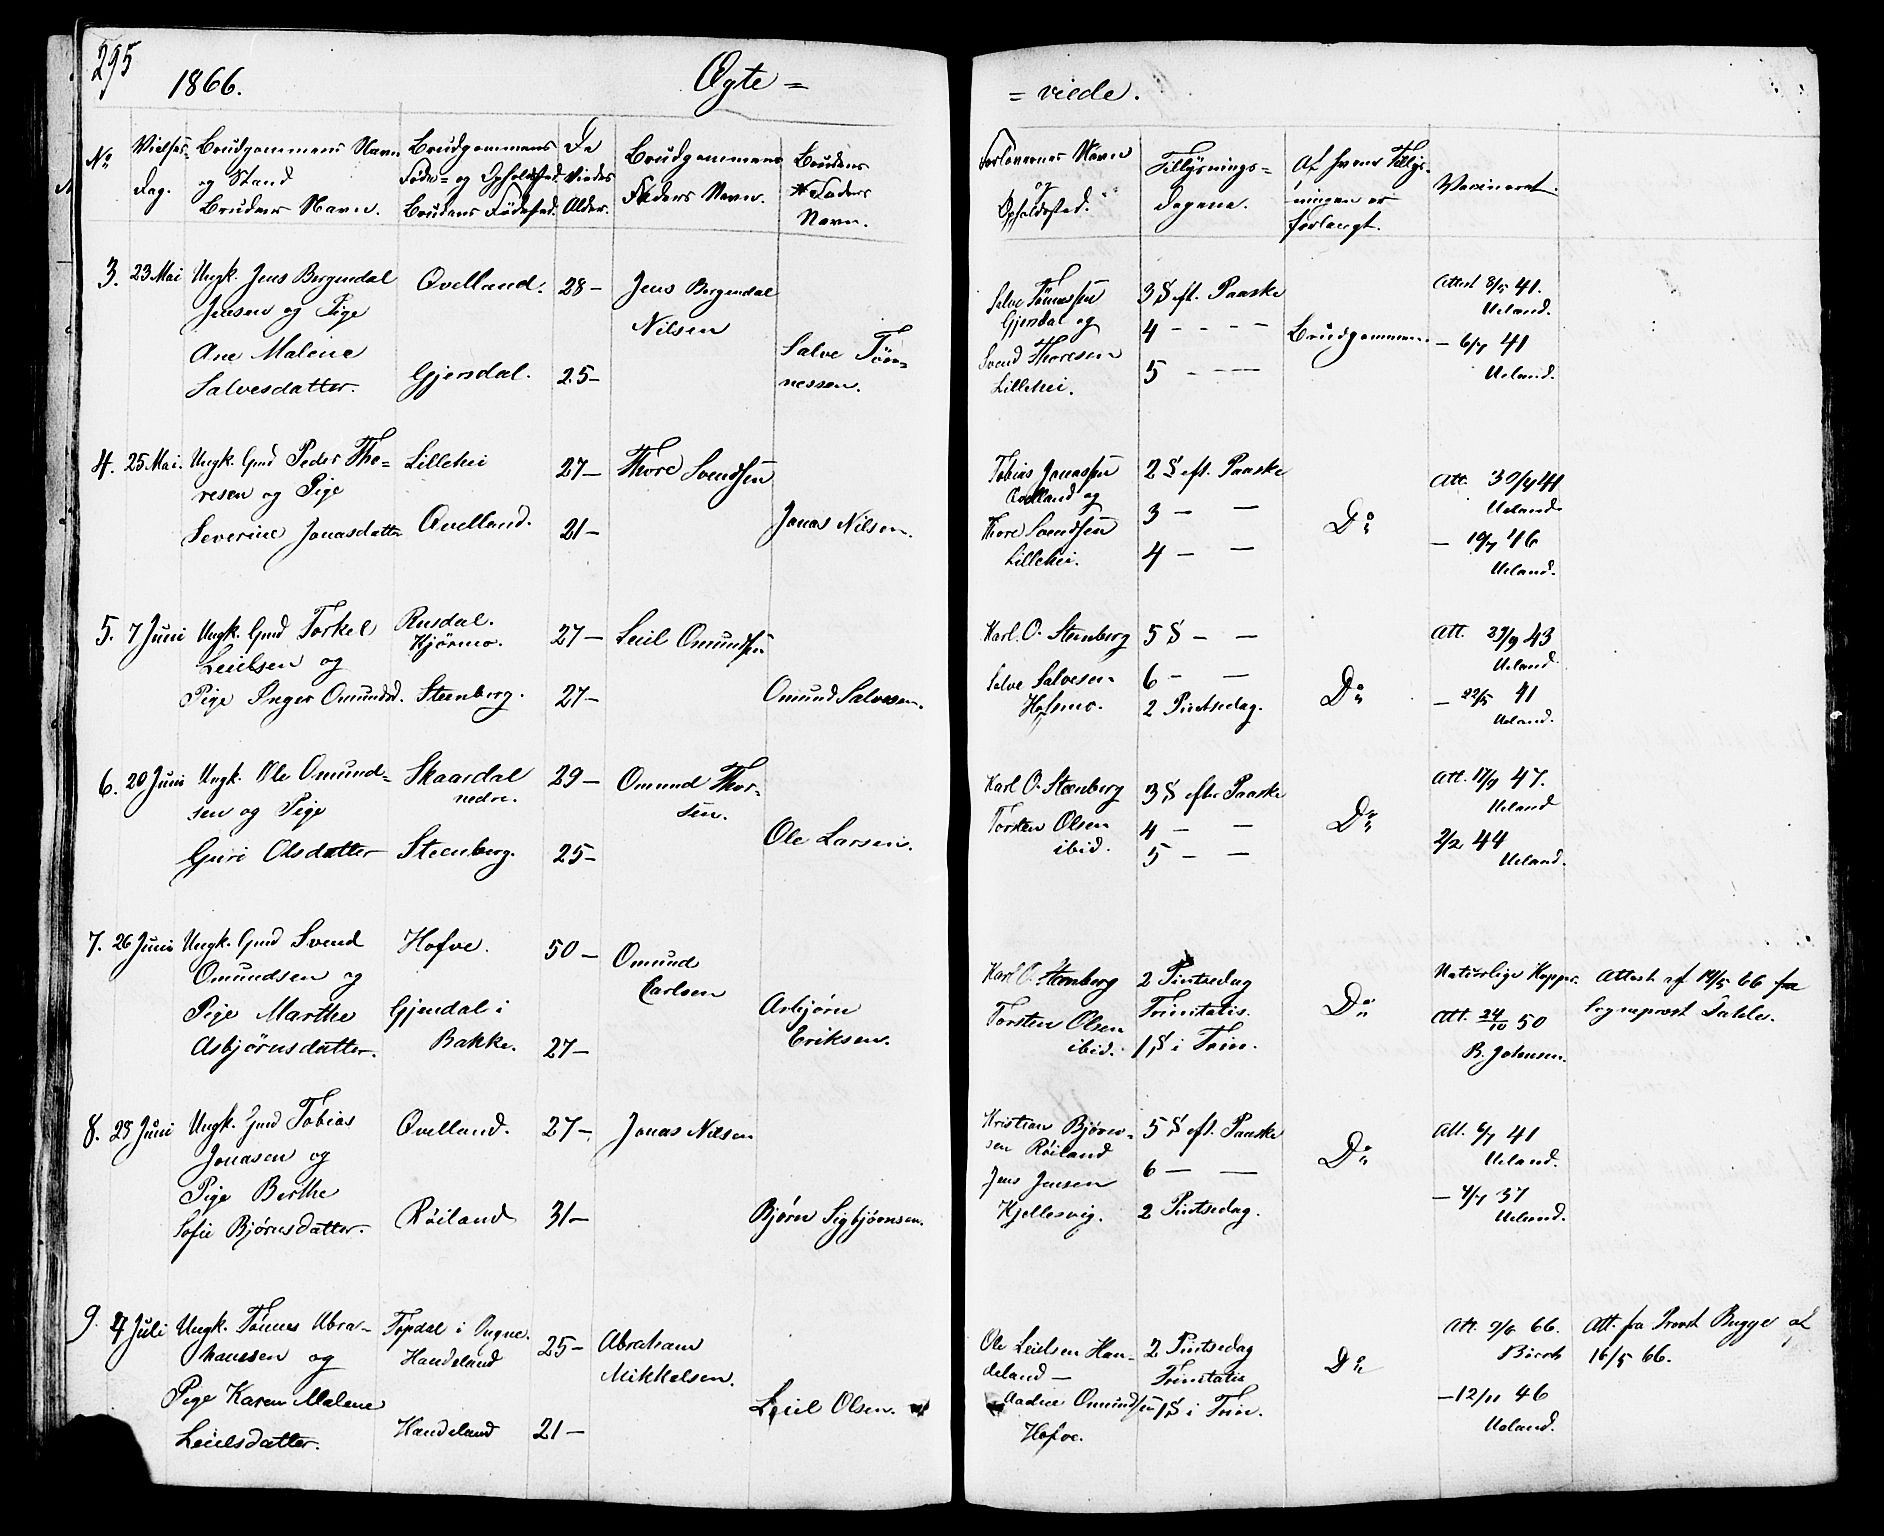 295
1866.
Ægte =
= viede.
No
Vielses-
Dag.
Brudgommens Navn
og Stand
Brudens Navn.
Brudgommens
Føde- og Opholdsted.
Brudens Fødested.
De
Viedes
Alder.
Brudgommens
Faders Navn.
Brudens
Faders
Navn.
Forlovernes Navn
og
Opholdssted.
Tillysnings-
Dagene.
Af hvem Tillys-
ningen er
forlangt.
Vaccineret.
3. 23 Mai Ungk. Jens Bergendal
Jensen og Pige
Ane Malene
Salvesdatter.
Qvelland. 28-
Gjersdal. 25-
Jens Bergendal
Nilsen
Salve Tøn-
nessen.
Salve Tønnessen
Gjersdal og
Svend Thoresen
Lillehei.
3 S eft. Paaske
4 - - - -
5 - - -
Brudgommen
Attest 3/5 41.
Ueland.
- 6/7 41
Ueland.
4. 25 Mai. Ungk. Gmd Peder Tho-
resen og Pige
Severine Jonasdatter
Lillehei 27-
Qvelland. 21-
Thore Svendsen
Jonas Nilsen.
Tobias Jonassen
Qvelland og
Thore Svendsen
Lillehei.
2 S eft. Paaske
3 - -
4 - -
Do
Att. 30/4 41
Ueland.
- 19/7 46
Ueland.
5. 7 Juni Ungk. Gmd Torkel
Leielsen og
Pige Inger Omundsd.
Rusdal.
Kjørmo. 27-
Steenberg. 27-
Leiel Omundsen
Omund Salvesen.
Karl O. Steenberg
Salve Salvesen
Hofsmo.
5 S - -
6 - -
2 Pintsedag.
Do
Att. 29/9 43
Ueland
- 22/5 41
Ueland.
6. 20 Juni Ungk. Ole Omund-
sen og Pige
Guri Olsdatter
Skaardal
nedre. 29-
Steenberg. 25-
Omund Thor-
sen.
Ole Larsen.
Karl O. Steenberg
Torsten Olsen
ibid.
3 S efter Paaske
4 - -
5 - -
Do
Att. 17/9 47.
Ueland
2/2 44
Ueland.
7. 26 Juni Ungk. Gmd Svend
Omundsen og
Pige Marthe
Asbjørnsdatter.
Hofve. 50-
Gjendal i
Bakke. 27-
Omund
Carlsen
Asbjørn
Eriksen.
Karl O. Steenberg
Torsten Olsen
ibid.
2 Pintsedag
Trinitatis.
1 S i Trin.
Do
Naturlige Kopper.
Att. 24/10 50
B. Johnsen.
Attest af 14/5 66 fra
Sognepræst Dahle.
8. 28 Juni Ungk. Gmd Tobias
Jonasen og
Pige Berthe
Sofie Bjørnsdatter.
Qvelland. 27-
Røiland 31-
Jonas Nilsen
Bjørn Sigbjørnsen.
Kristian Bjørn-
sen Røiland
Jens Jensen
Kjellesvig.
5 S eft. Paaske
6 - -
2 Pintsedag.
Do
Att. 6/7 41
Ueland.
- 4/7 37
Ueland.
9. 4 Juli Ungk. Tønnes Abra-
hamsen og
Pige Karen Malene
Leielsdatter.
Topdal i Qvigne.
Handeland 25-
Handeland 21-
Abraham
Mikkelsen.
Leiel Olsen.
Ole Leielsen Han-
deland -
Aadne Omundsen
Hofve.
2 Pintsedag
Trinitatis
1 S i Trin.
Do
Att. 9/6 66.
Börch
- 12/11 46
Ueland.
Att. fra Provst Bugge af
16/5 66.